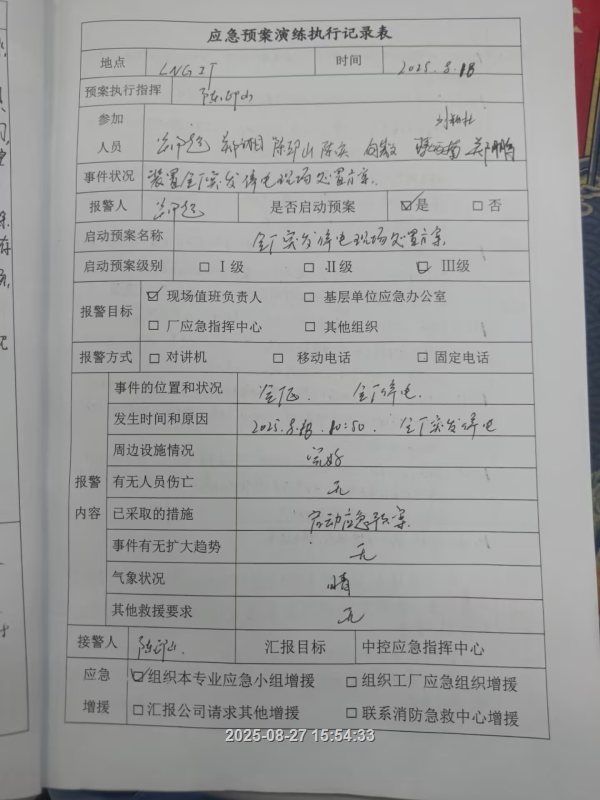 应急预案演练执行记录表
地点 LNG 2T 时间 2025.8.18
预案执行指挥 陈邱山
参加
人员 陈邱山
事件状况 装置全厂突发停电现场处置方案.
报警人 是否启动预案 ☑是 □否
启动预案名称 全厂突发停电现场处置方案.
启动预案级别 □Ⅰ级 □Ⅱ级 ☑Ⅲ级
报警目标 ☑现场值班负责人 □基层单位应急办公室
□厂应急指挥中心 □其他组织
报警方式 □对讲机 □移动电话 □固定电话
报警
内容
事件的位置和状况 全厂停电.
发生时间和原因 2025.8.18. 10:50. 全厂突发停电
周边设施情况 完好
有无人员伤亡 无
已采取的措施 启动应急预案.
事件有无扩大趋势 无
气象状况 晴
其他救援要求 无
接警人 陈邱山. 汇报目标 中控应急指挥中心
应急
增援
☑组织本专业应急小组增援 □组织工厂应急组织增援
□汇报公司请求其他增援 □联系消防急救中心增援
2025-08-27 15:54:33